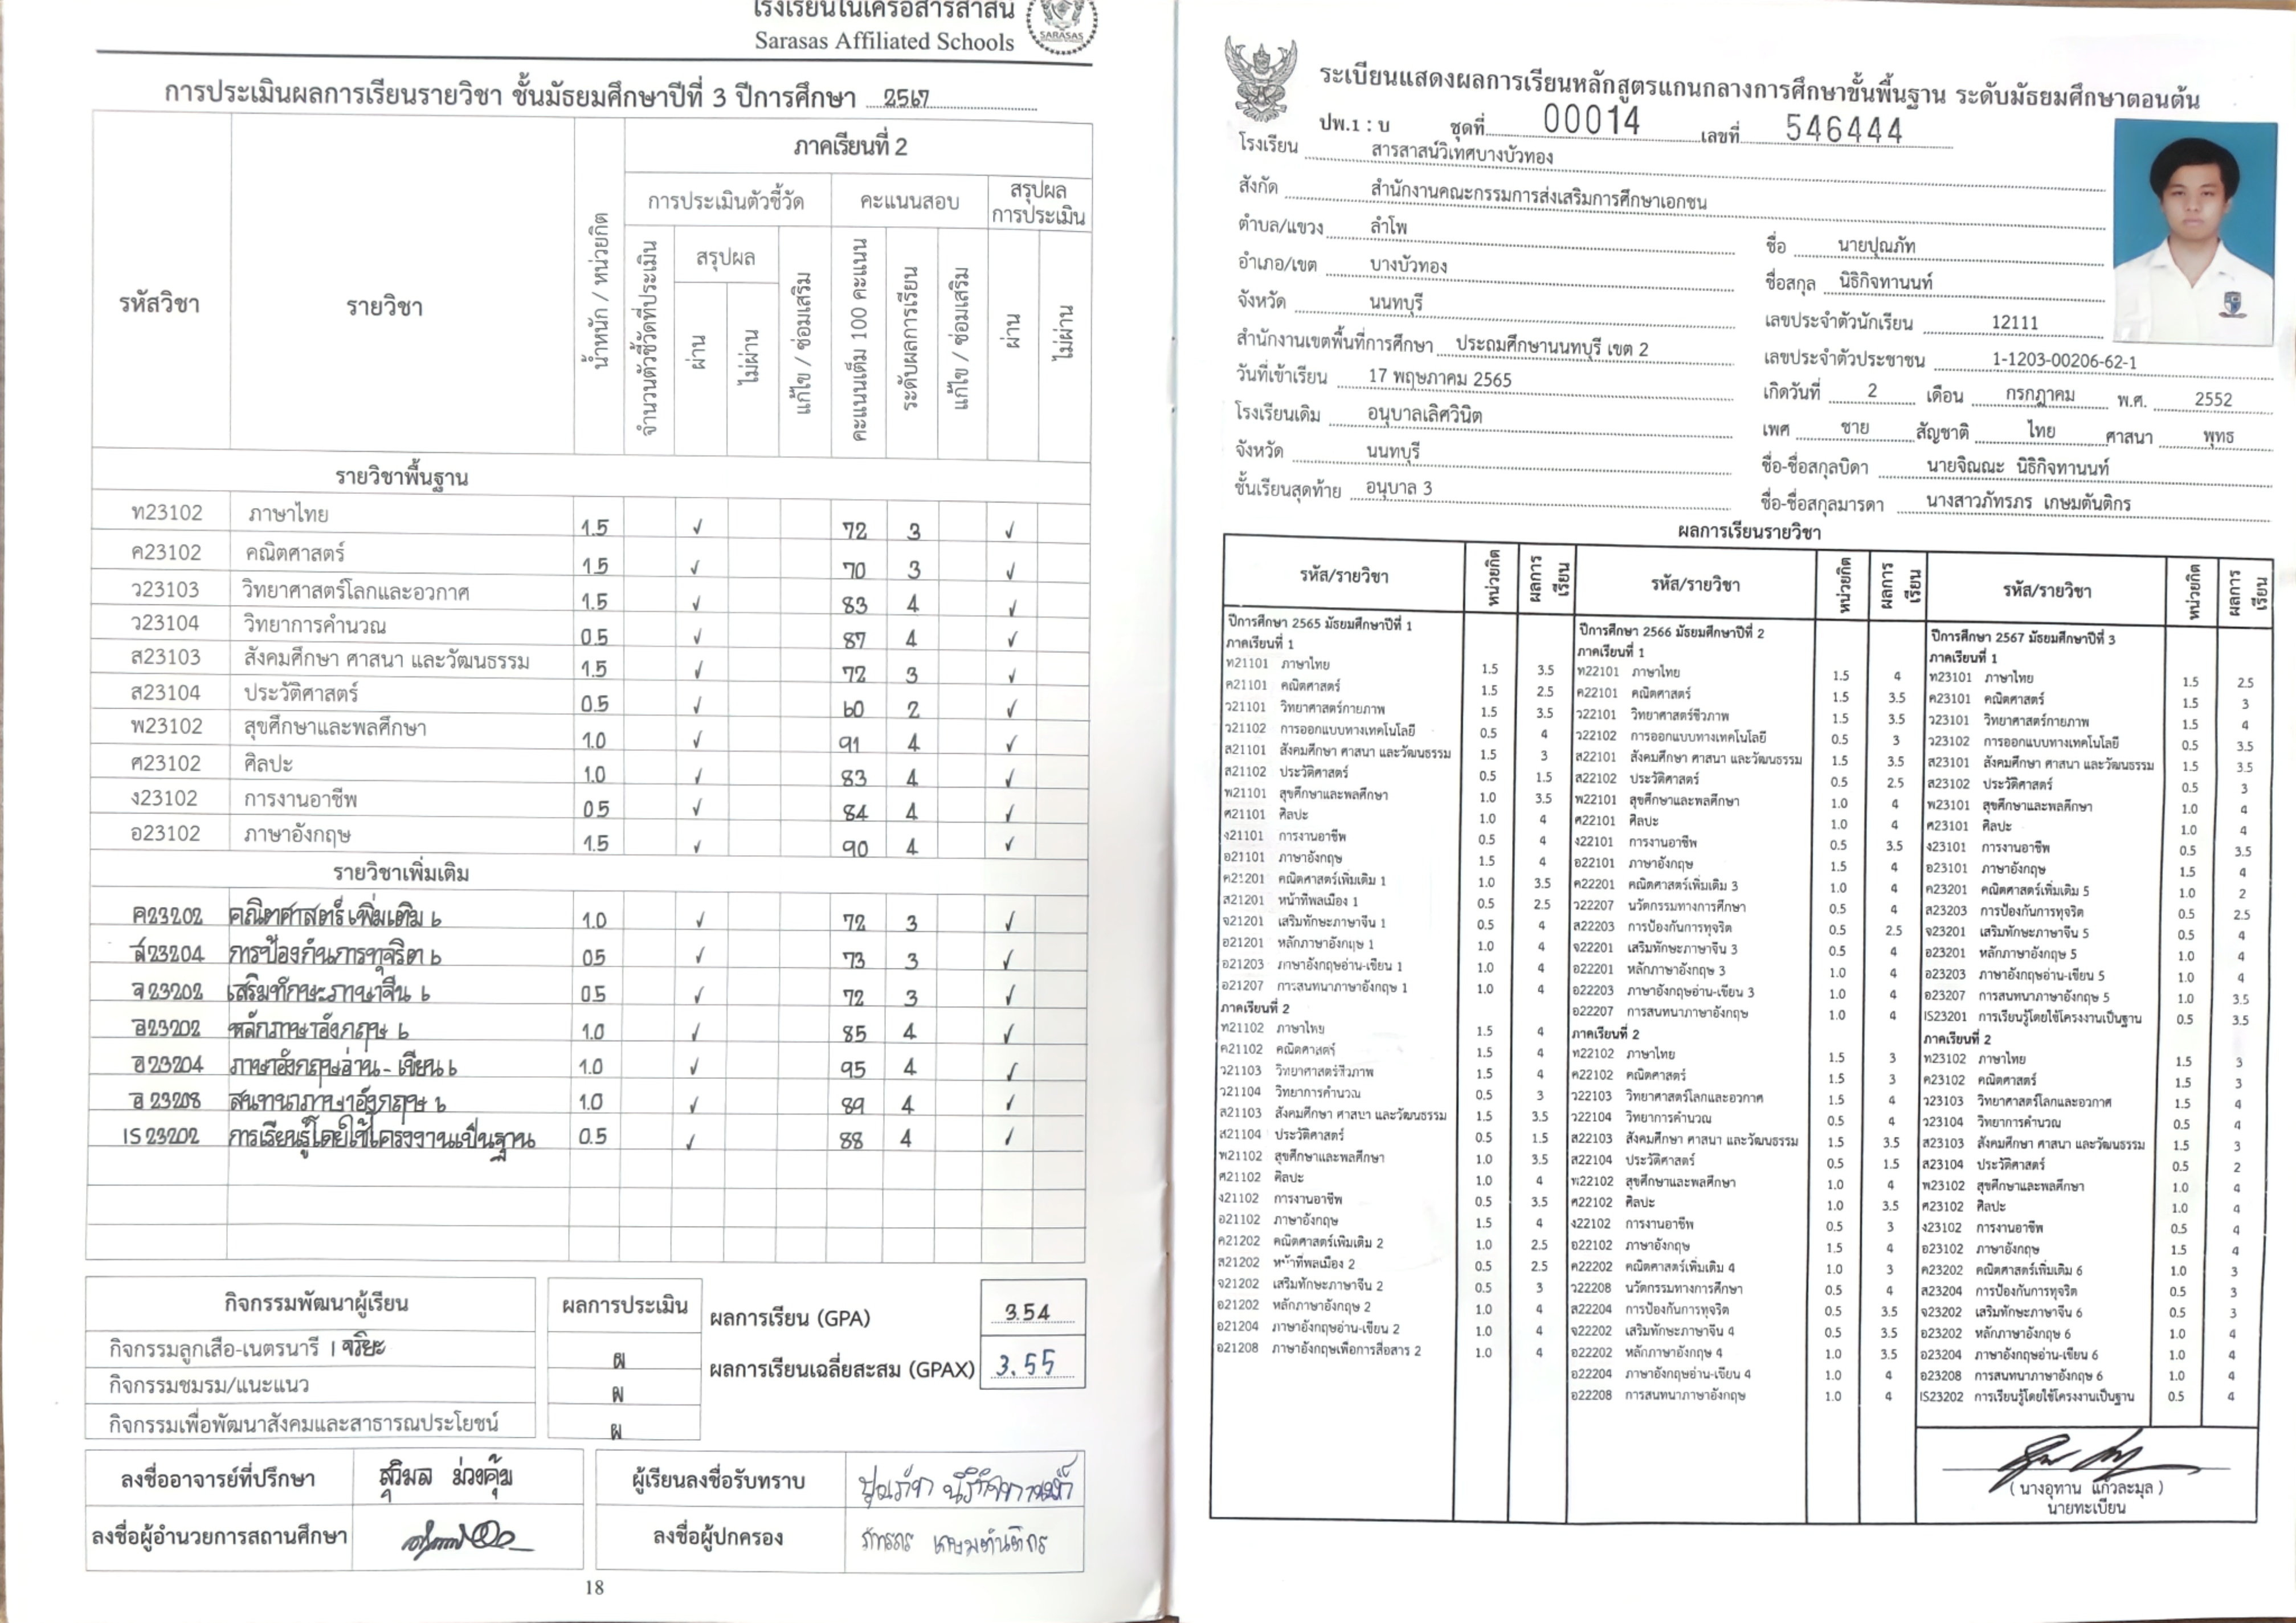 โรงเรียนในเครือสารสาสน์
Sarasas Affiliated Schools
SARASAS
การประเมินผลการเรียนรายวิชา ชั้นมัธยมศึกษาปีที่ 3 ปีการศึกษา 2567
รหัสวิชา รายวิชา น้ำหนัก / หน่วยกิต ภาคเรียนที่ 2
การประเมินตัวชี้วัด คะแนนสอบ สรุปผลการประเมิน
จำนวนตัวชี้วัดที่ประเมิน สรุปผล ผ่าน ไม่ผ่าน แก้ไข / ซ่อมเสริม คะแนนเต็ม 100 คะแนน ระดับผลการเรียน แก้ไข / ซ่อมเสริม ผ่าน ไม่ผ่าน
รายวิชาพื้นฐาน
ท23102 ภาษาไทย 1.5 ✓ 72 3 ✓
ค23102 คณิตศาสตร์ 1.5 ✓ 70 3 ✓
ว23103 วิทยาศาสตร์โลกและอวกาศ 1.5 ✓ 83 4 ✓
ว23104 วิทยาการคำนวณ 0.5 ✓ 87 4 ✓
ส23103 สังคมศึกษา ศาสนา และวัฒนธรรม 1.5 ✓ 72 3 ✓
ส23104 ประวัติศาสตร์ 0.5 ✓ 60 2 ✓
พ23102 สุขศึกษาและพลศึกษา 1.0 ✓ 91 4 ✓
ศ23102 ศิลปะ 1.0 ✓ 83 4 ✓
ง23102 การงานอาชีพ 0.5 ✓ 84 4 ✓
อ23102 ภาษาอังกฤษ 1.5 ✓ 90 4 ✓
รายวิชาเพิ่มเติม
ค23202 คณิตศาสตร์เพิ่มเติม 6 1.0 ✓ 72 3 ✓
ส23204 การป้องกันการทุจริต 6 0.5 ✓ 73 3 ✓
จ23202 เสริมทักษะภาษาจีน 6 0.5 ✓ 72 3 ✓
อ23202 หลักภาษาอังกฤษ 6 1.0 ✓ 85 4 ✓
อ23204 ภาษาอังกฤษอ่าน - เขียน 6 1.0 ✓ 95 4 ✓
อ23208 สนทนาภาษาอังกฤษ 6 1.0 ✓ 89 4 ✓
IS23202 การเรียนรู้โดยใช้โครงงานเป็นฐาน 0.5 ✓ 88 4 ✓
กิจกรรมพัฒนาผู้เรียน ผลการประเมิน
กิจกรรมลูกเสือ-เนตรนารี / จริยะ ผ
กิจกรรมชมรม/แนะแนว ผ
กิจกรรมเพื่อพัฒนาสังคมและสาธารณประโยชน์ ผ
ผลการเรียน (GPA) 3.54
ผลการเรียนเฉลี่ยสะสม (GPAX) 3.55
ลงชื่ออาจารย์ที่ปรึกษา สุวิมล ม่วงคุ้ม
ผู้เรียนลงชื่อรับทราบ ปุณภัท นิธิกิจทานนท์
ลงชื่อผู้อำนวยการสถานศึกษา
ลงชื่อผู้ปกครอง ภัทรภร เกษมตันติกร
18
ระเบียนแสดงผลการเรียนหลักสูตรแกนกลางการศึกษาขั้นพื้นฐาน ระดับมัธยมศึกษาตอนต้น
ปพ.1 : บ ชุดที่ 00014 เลขที่ 546444
โรงเรียน สารสาสน์วิเทศบางบัวทอง
สังกัด สำนักงานคณะกรรมการส่งเสริมการศึกษาเอกชน
ตำบล/แขวง ลำโพ
อำเภอ/เขต บางบัวทอง
จังหวัด นนทบุรี
สำนักงานเขตพื้นที่การศึกษา ประถมศึกษานนทบุรี เขต 2
วันที่เข้าเรียน 17 พฤษภาคม 2565
โรงเรียนเดิม อนุบาลเลิศวินิต
จังหวัด นนทบุรี
ชั้นเรียนสุดท้าย อนุบาล 3
ชื่อ นายปุณภัท
ชื่อสกุล นิธิกิจทานนท์
เลขประจำตัวนักเรียน 12111
เลขประจำตัวประชาชน 1-1203-00206-62-1
เกิดวันที่ 2 เดือน กรกฎาคม พ.ศ. 2552
เพศ ชาย สัญชาติ ไทย ศาสนา พุทธ
ชื่อ-ชื่อสกุลบิดา นายจิณณะ นิธิกิจทานนท์
ชื่อ-ชื่อสกุลมารดา นางสาวภัทรภร เกษมตันติกร
ผลการเรียนรายวิชา
รหัส/รายวิชา หน่วยกิต ผลการเรียน
ปีการศึกษา 2565 มัธยมศึกษาปีที่ 1
ภาคเรียนที่ 1
ท21101 ภาษาไทย 1.5 3.5
ค21101 คณิตศาสตร์ 1.5 2.5
ว21101 วิทยาศาสตร์กายภาพ 1.5 3.5
ว21102 การออกแบบทางเทคโนโลยี 0.5 4
ส21101 สังคมศึกษา ศาสนา และวัฒนธรรม 1.5 3
ส21102 ประวัติศาสตร์ 0.5 1.5
พ21101 สุขศึกษาและพลศึกษา 1.0 3.5
ศ21101 ศิลปะ 1.0 4
ง21101 การงานอาชีพ 0.5 4
อ21101 ภาษาอังกฤษ 1.5 4
ค21201 คณิตศาสตร์เพิ่มเติม 1 1.0 3.5
ส21201 หน้าที่พลเมือง 1 0.5 2.5
จ21201 เสริมทักษะภาษาจีน 1 0.5 4
อ21201 หลักภาษาอังกฤษ 1 1.0 4
อ21203 ภาษาอังกฤษอ่าน-เขียน 1 1.0 4
อ21207 การสนทนาภาษาอังกฤษ 1 1.0 4
ภาคเรียนที่ 2
ท21102 ภาษาไทย 1.5 4
ค21102 คณิตศาสตร์ 1.5 4
ว21103 วิทยาศาสตร์ชีวภาพ 1.5 4
ว21104 วิทยาการคำนวณ 0.5 3
ส21103 สังคมศึกษา ศาสนา และวัฒนธรรม 1.5 3.5
ส21104 ประวัติศาสตร์ 0.5 1.5
พ21102 สุขศึกษาและพลศึกษา 1.0 3.5
ศ21102 ศิลปะ 1.0 4
ง21102 การงานอาชีพ 0.5 3.5
อ21102 ภาษาอังกฤษ 1.5 4
ค21202 คณิตศาสตร์เพิ่มเติม 2 1.0 2.5
ส21202 หน้าที่พลเมือง 2 0.5 2.5
จ21202 เสริมทักษะภาษาจีน 2 0.5 3
อ21202 หลักภาษาอังกฤษ 2 1.0 4
อ21204 ภาษาอังกฤษอ่าน-เขียน 2 1.0 4
อ21208 ภาษาอังกฤษเพื่อการสื่อสาร 2 1.0 4
รหัส/รายวิชา หน่วยกิต ผลการเรียน
ปีการศึกษา 2566 มัธยมศึกษาปีที่ 2
ภาคเรียนที่ 1
ท22101 ภาษาไทย 1.5 4
ค22101 คณิตศาสตร์ 1.5 3.5
ว22101 วิทยาศาสตร์ชีวภาพ 1.5 3.5
ว22102 การออกแบบทางเทคโนโลยี 0.5 3
ส22101 สังคมศึกษา ศาสนา และวัฒนธรรม 1.5 3.5
ส22102 ประวัติศาสตร์ 0.5 2.5
พ22101 สุขศึกษาและพลศึกษา 1.0 4
ศ22101 ศิลปะ 1.0 4
ง22101 การงานอาชีพ 0.5 3.5
อ22101 ภาษาอังกฤษ 1.5 4
ค22201 คณิตศาสตร์เพิ่มเติม 3 1.0 4
ว22207 นวัตกรรมทางการศึกษา 0.5 4
ส22203 การป้องกันการทุจริต 0.5 2.5
จ22201 เสริมทักษะภาษาจีน 3 0.5 4
อ22201 หลักภาษาอังกฤษ 3 1.0 4
อ22203 ภาษาอังกฤษอ่าน-เขียน 3 1.0 4
อ22207 การสนทนาภาษาอังกฤษ 1.0 4
ภาคเรียนที่ 2
ท22102 ภาษาไทย 1.5 3
ค22102 คณิตศาสตร์ 1.5 3
ว22103 วิทยาศาสตร์โลกและอวกาศ 1.5 4
ว22104 วิทยาการคำนวณ 0.5 4
ส22103 สังคมศึกษา ศาสนา และวัฒนธรรม 1.5 3.5
ส22104 ประวัติศาสตร์ 0.5 1.5
พ22102 สุขศึกษาและพลศึกษา 1.0 4
ศ22102 ศิลปะ 1.0 3.5
ง22102 การงานอาชีพ 0.5 3
อ22102 ภาษาอังกฤษ 1.5 4
ค22202 คณิตศาสตร์เพิ่มเติม 4 1.0 3
ว22208 นวัตกรรมทางการศึกษา 0.5 4
ส22204 การป้องกันการทุจริต 0.5 3.5
จ22202 เสริมทักษะภาษาจีน 4 0.5 3.5
อ22202 หลักภาษาอังกฤษ 4 1.0 3.5
อ22204 ภาษาอังกฤษอ่าน-เขียน 4 1.0 4
อ22208 การสนทนาภาษาอังกฤษ 1.0 4
รหัส/รายวิชา หน่วยกิต ผลการเรียน
ปีการศึกษา 2567 มัธยมศึกษาปีที่ 3
ภาคเรียนที่ 1
ท23101 ภาษาไทย 1.5 2.5
ค23101 คณิตศาสตร์ 1.5 3
ว23101 วิทยาศาสตร์กายภาพ 1.5 4
ว23102 การออกแบบทางเทคโนโลยี 0.5 3.5
ส23101 สังคมศึกษา ศาสนา และวัฒนธรรม 1.5 3.5
ส23102 ประวัติศาสตร์ 0.5 3
พ23101 สุขศึกษาและพลศึกษา 1.0 4
ศ23101 ศิลปะ 1.0 4
ง23101 การงานอาชีพ 0.5 3.5
อ23101 ภาษาอังกฤษ 1.5 4
ค23201 คณิตศาสตร์เพิ่มเติม 5 1.0 2
ส23203 การป้องกันการทุจริต 0.5 2.5
จ23201 เสริมทักษะภาษาจีน 5 0.5 4
อ23201 หลักภาษาอังกฤษ 5 1.0 4
อ23203 ภาษาอังกฤษอ่าน-เขียน 5 1.0 4
อ23207 การสนทนาภาษาอังกฤษ 5 1.0 3.5
IS23201 การเรียนรู้โดยใช้โครงงานเป็นฐาน 0.5 3.5
ภาคเรียนที่ 2
ท23102 ภาษาไทย 1.5 3
ค23102 คณิตศาสตร์ 1.5 3
ว23103 วิทยาศาสตร์โลกและอวกาศ 1.5 4
ว23104 วิทยาการคำนวณ 0.5 4
ส23103 สังคมศึกษา ศาสนา และวัฒนธรรม 1.5 3
ส23104 ประวัติศาสตร์ 0.5 2
พ23102 สุขศึกษาและพลศึกษา 1.0 4
ศ23102 ศิลปะ 1.0 4
ง23102 การงานอาชีพ 0.5 4
อ23102 ภาษาอังกฤษ 1.5 4
ค23202 คณิตศาสตร์เพิ่มเติม 6 1.0 3
ส23204 การป้องกันการทุจริต 0.5 3
จ23202 เสริมทักษะภาษาจีน 6 0.5 3
อ23202 หลักภาษาอังกฤษ 6 1.0 4
อ23204 ภาษาอังกฤษอ่าน-เขียน 6 1.0 4
อ23208 การสนทนาภาษาอังกฤษ 6 1.0 4
IS23202 การเรียนรู้โดยใช้โครงงานเป็นฐาน 0.5 4
( นางอุทาน แก้วละมุล )
นายทะเบียน